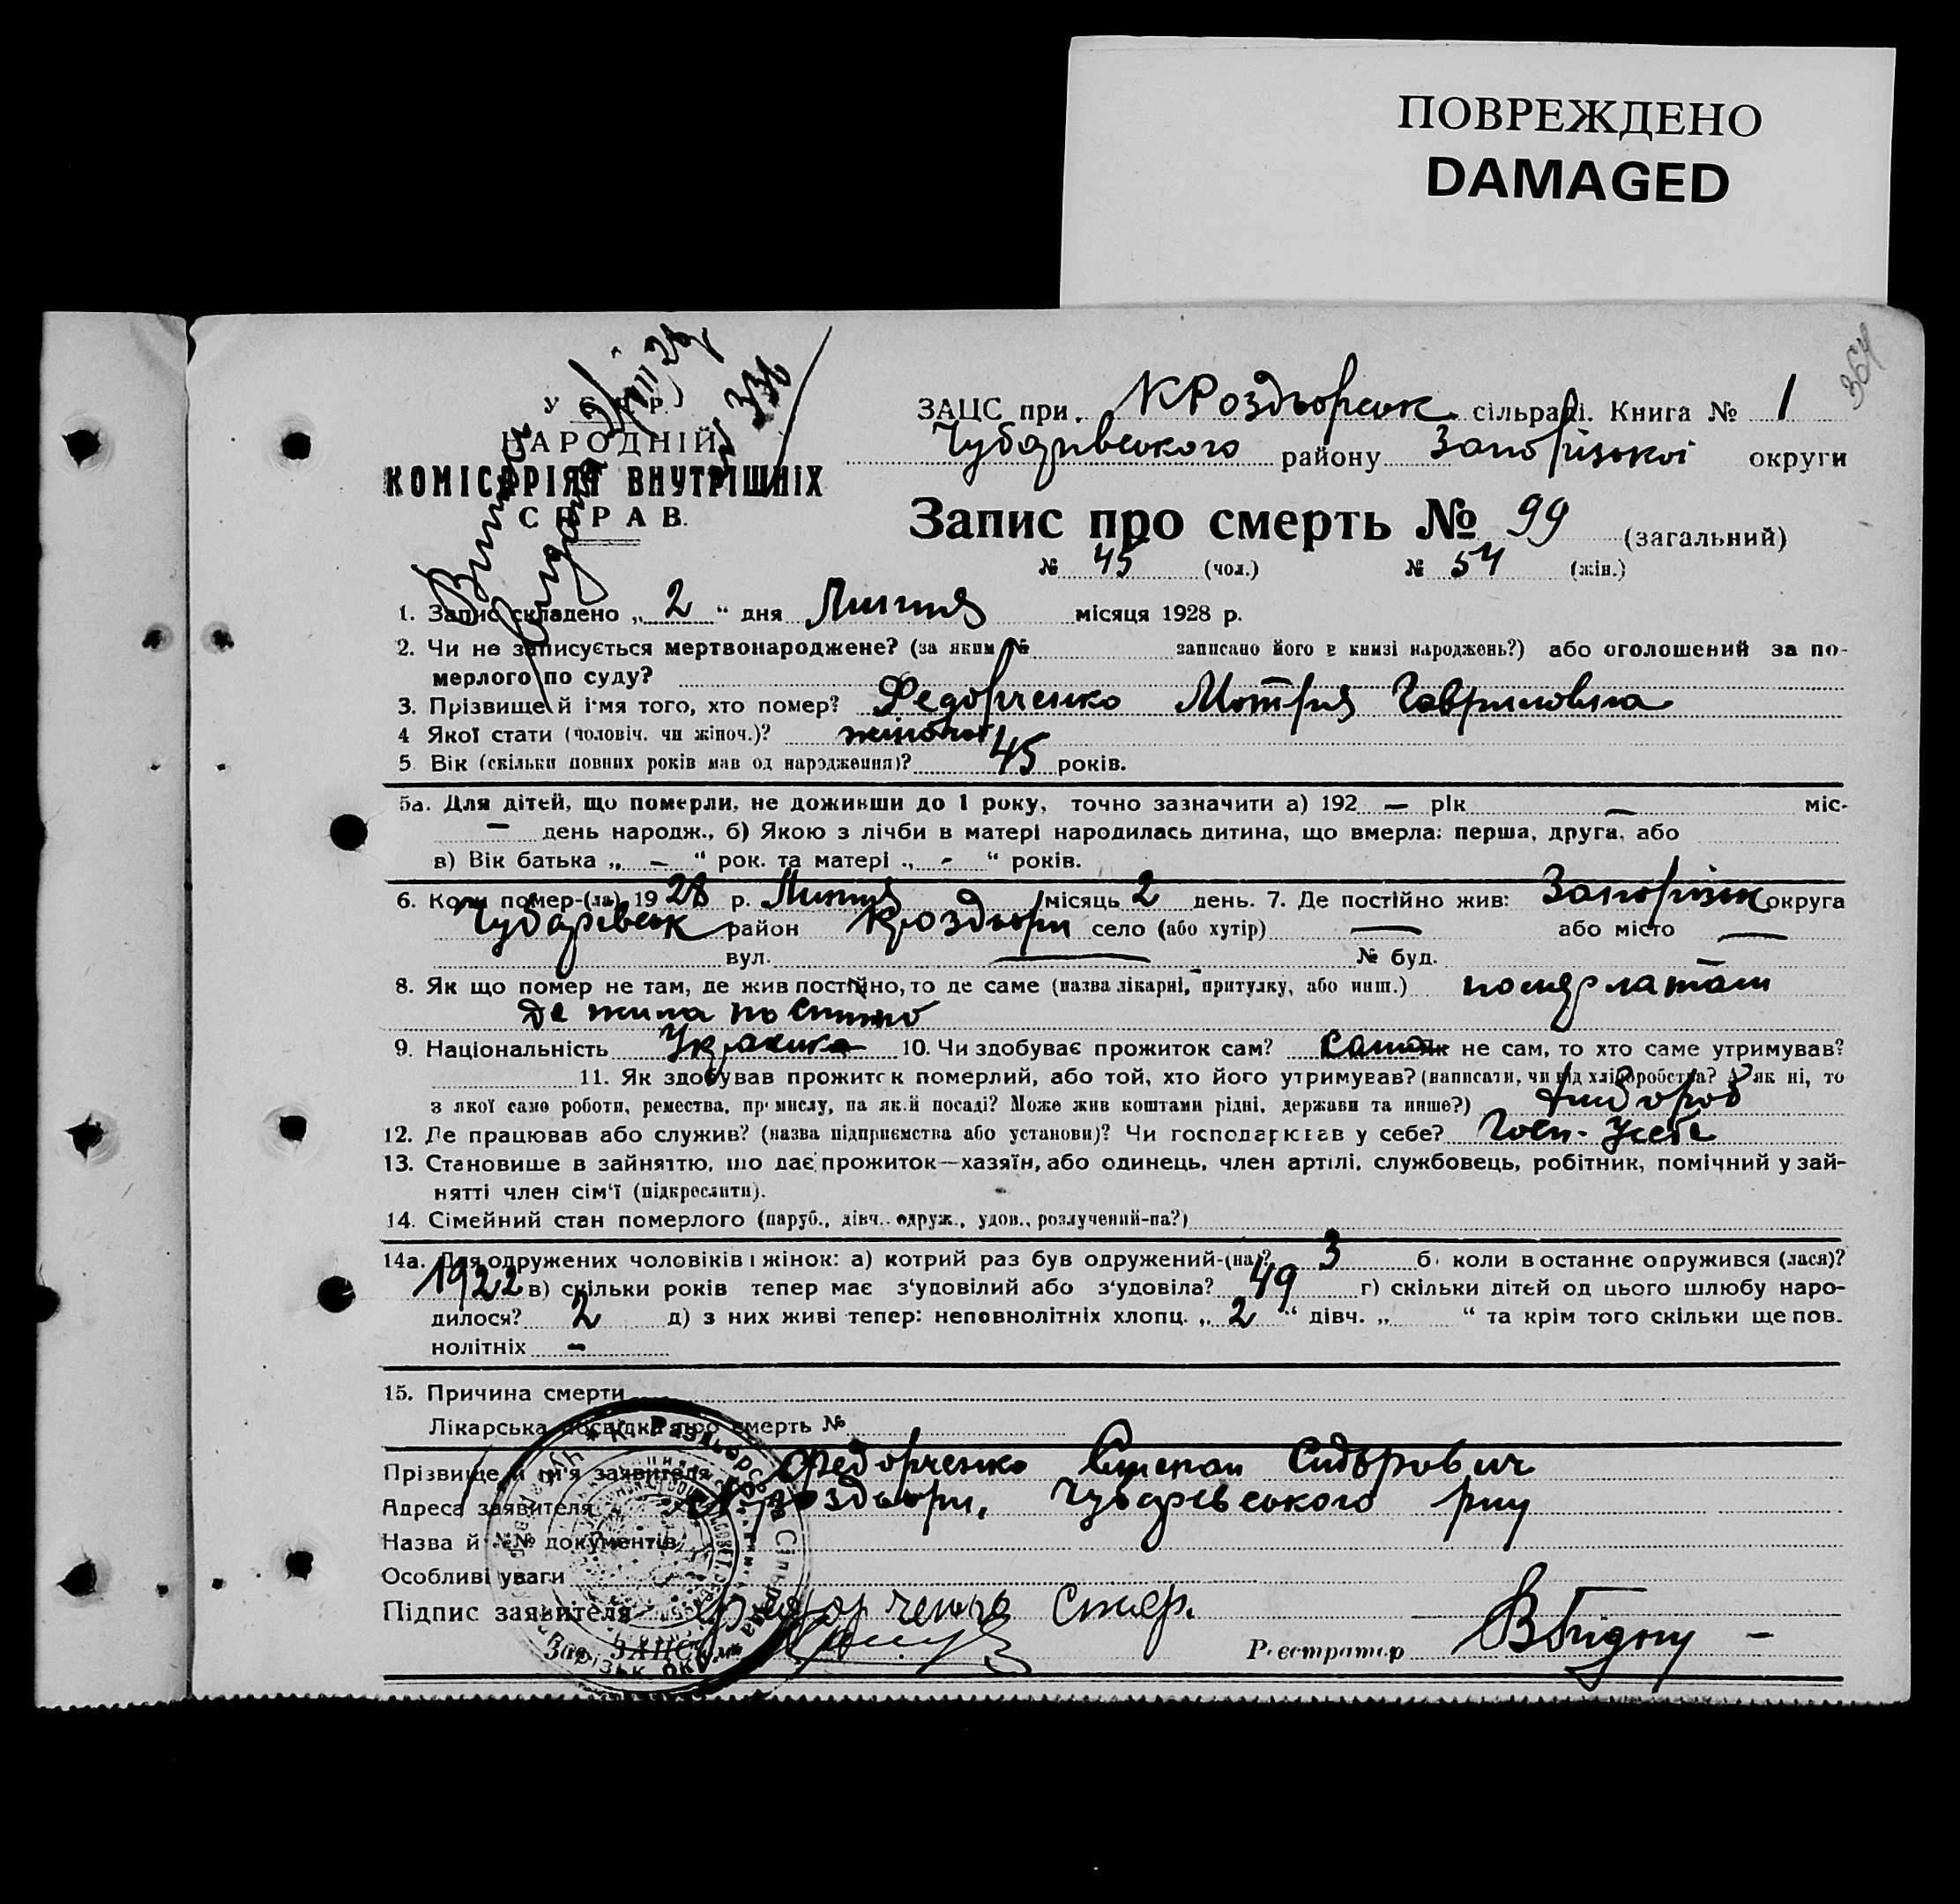 ПОВРЕЖДЕНО
DAMAGED
364
У С Р Р
НАРОДНІЙ
КОМІСАРІЯТ ВНУТРІШНІХ
СПРАВ.
336
ЗАЦС при КРоздьорськ сільраді. Книга № 1
Чубарівського району Запорізької округи
Запис про смерть № 99 (загальний)
№ 45 (чол.) № 54 (жін.)
1. Запис складено „ 2 “ дня Липня місяця 1928 р.
2. Чи не записується мертвонароджене? (за яким № записано його в книзі народжень?) або оголошений за по-
мерлого по суду?
3. Прізвище й ім'я того, хто помер? Федорченко Мотря Гавриловна
4 Якої стати (чоловіч. чи жіноч.)? жіночої
5. Вік (скільки повних років мав од народження)? 45 років.
5а. Для дітей, що померли, не доживши до 1 року, точно зазначити а) 192 — рік — міс-
— день народж., б) Якою з лічби в матері народилась дитина, що вмерла: перша, друга, або
в) Вік батька „ — “ рок. та матері „ - “ років.
6. Коли помер-(ла) 1928 р. Липня місяць 2 день. 7. Де постійно жив: Запорізьк округа
Чубарівськ район Кроздьори село (або хутір) — або місто —
вул. — № буд.
8. Як що помер не там, де жив постійно, то де саме (назва лікарні, притулку, або инш.) померла там
де жила постійно
9. Національність Українка 10. Чи здобуває прожиток сам? сама як не сам, то хто саме утримував?
11. Як здобував прожиток померлий, або той, хто його утримував? (написати, чи від хліборобства? А як ні, то
з якої само роботи, ремества, промислу, на якій посаді? Може жив коштами рідні, держави та инше?) хлібороб
12. Де працював або служив? (назва підприємства або установи)? Чи господарював у себе? Госп. у себе
13. Становище в зайняттю, що дає прожиток—хазяїн, або одинець, член артілі, службовець, робітник, помічний у зай-
нятті член сім'ї (підкреслити).
14. Сімейний стан померлого (паруб., дівч. одруж., удов., розлучений-на?)
14а. Для одружених чоловіків і жінок: а) котрий раз був одружений-(на)? 3 б) коли востаннє одружився (лася)?
1922 в) скільки років тепер має з'удовілий або з'удовіла? 49 г) скільки дітей од цього шлюбу наро-
дилося? 2 д) з них живі тепер: неповнолітніх хлопц. „ 2 “ дівч. „ “ та крім того скільки ще пов-
нолітніх -
15. Причина смерти
Лікарська посвідка про смерть №
Прізвище й ім'я заявителя Федорченко Степан Сидорович
Адреса заявителя Кроздьори, Чубарівського р-ну
Назва й №№ документів
Особливі уваги
Підпис заявителя Федорченко Степ.
Зав. ЗАЦСом Реєстратор